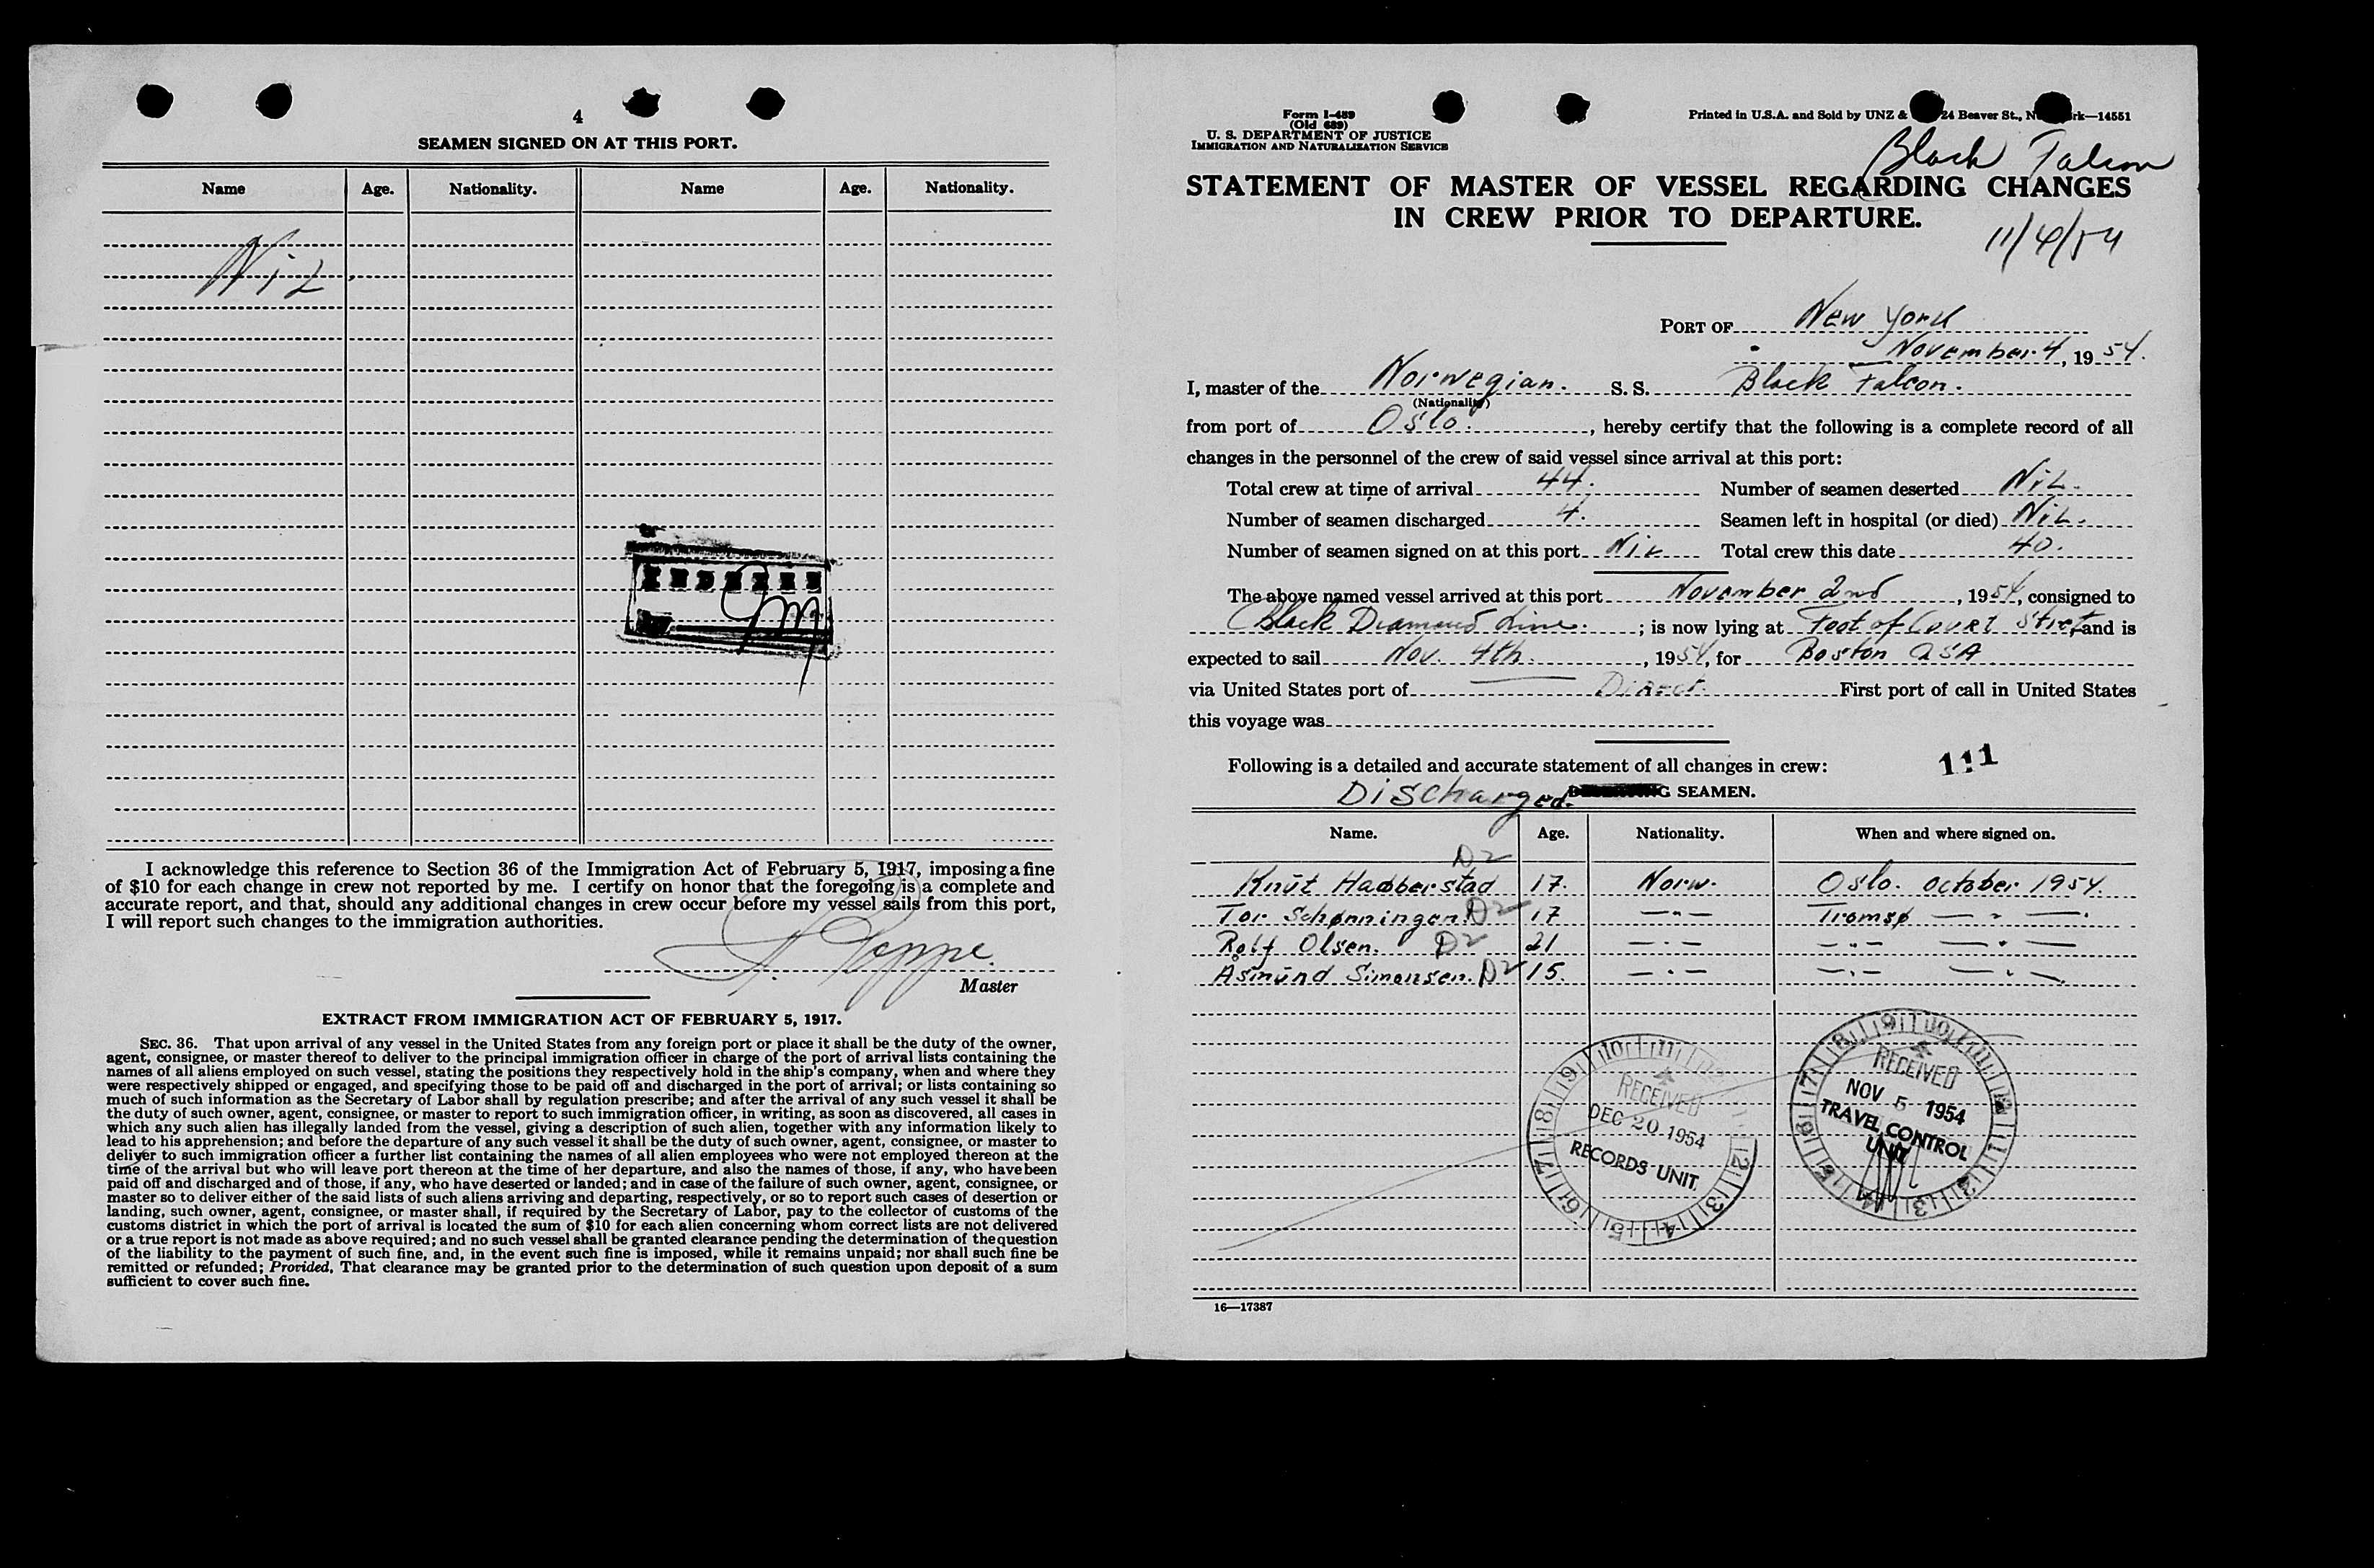 4
SEAMEN SIGNED ON AT THIS PORT.
Name Age. Nationality. Name Age. Nationality.
Nil
INDEXED
I acknowledge this reference to Section 36 of the Immigration Act of February 5, 1917, imposing a fine
of $10 for each change in crew not reported by me. I certify on honor that the foregoing is a complete and
accurate report, and that, should any additional changes in crew occur before my vessel sails from this port,
I will report such changes to the immigration authorities.
Master
EXTRACT FROM IMMIGRATION ACT OF FEBRUARY 5, 1917.
SEC. 36. That upon arrival of any vessel in the United States from any foreign port or place it shall be the duty of the owner,
agent, consignee, or master thereof to deliver to the principal immigration officer in charge of the port of arrival lists containing the
names of all aliens employed on such vessel, stating the positions they respectively hold in the ship's company, when and where they
were respectively shipped or engaged, and specifying those to be paid off and discharged in the port of arrival; or lists containing so
much of such information as the Secretary of Labor shall by regulation prescribe; and after the arrival of any such vessel it shall be
the duty of such owner, agent, consignee, or master to report to such immigration officer, in writing, as soon as discovered, all cases in
which any such alien has illegally landed from the vessel, giving a description of such alien, together with any information likely to
lead to his apprehension; and before the departure of any such vessel it shall be the duty of such owner, agent, consignee, or master to
deliver to such immigration officer a further list containing the names of all alien employees who were not employed thereon at the
time of the arrival but who will leave port thereon at the time of her departure, and also the names of those, if any, who have been
paid off and discharged and of those, if any, who have deserted or landed; and in case of the failure of such owner, agent, consignee, or
master so to deliver either of the said lists of such aliens arriving and departing, respectively, or so to report such cases of desertion or
landing, such owner, agent, consignee, or master shall, if required by the Secretary of Labor, pay to the collector of customs of the
customs district in which the port of arrival is located the sum of $10 for each alien concerning whom correct lists are not delivered
or a true report is not made as above required; and no such vessel shall be granted clearance pending the determination of the question
of the liability to the payment of such fine, and, in the event such fine is imposed, while it remains unpaid; nor shall such fine be
remitted or refunded; Provided, That clearance may be granted prior to the determination of such question upon deposit of a sum
sufficient to cover such fine.
Form I-489
(Old 689)
U. S. DEPARTMENT OF JUSTICE
IMMIGRATION AND NATURALIZATION SERVICE
Printed in U.S.A. and Sold by UNZ & 24 Beaver St., 14551
Black Falcon
STATEMENT OF MASTER OF VESSEL REGARDING CHANGES
IN CREW PRIOR TO DEPARTURE.
11/4/54
PORT OF New York
November 4, 1954.
I, master of the Norwegian. S. S. Black Falcon.
(Nationality)
from port of Oslo., hereby certify that the following is a complete record of all
changes in the personnel of the crew of said vessel since arrival at this port:
Total crew at time of arrival 44. Number of seamen deserted NiL.
Number of seamen discharged 4. Seamen left in hospital (or died) NiL.
Number of seamen signed on at this port NiL Total crew this date 40.
The above named vessel arrived at this port November 2nd, 1954, consigned to
Black Diamond Line.; is now lying at Foot of Court Street, and is
expected to sail Nov. 4th., 1954, for Boston USA
via United States port of Direct. First port of call in United States
this voyage was
111
Following is a detailed and accurate statement of all changes in crew:
Discharged. SEAMEN.
Name. Age. Nationality. When and where signed on.
D2
Knut Hadberstad 17. Norw. Oslo. October 1954.
Tor Schønningen. D2 17 —"— Tromsø —"—.
Rolf Olsen. D2 21 —"— —"— —"—
Åsmund Simonsen. D2 15. —"— —"— —"—
RECEIVED
DEC 20 1954
RECORDS UNIT.
RECEIVED
NOV 5 1954
TRAVEL CONTROL
UNIT
16—17387